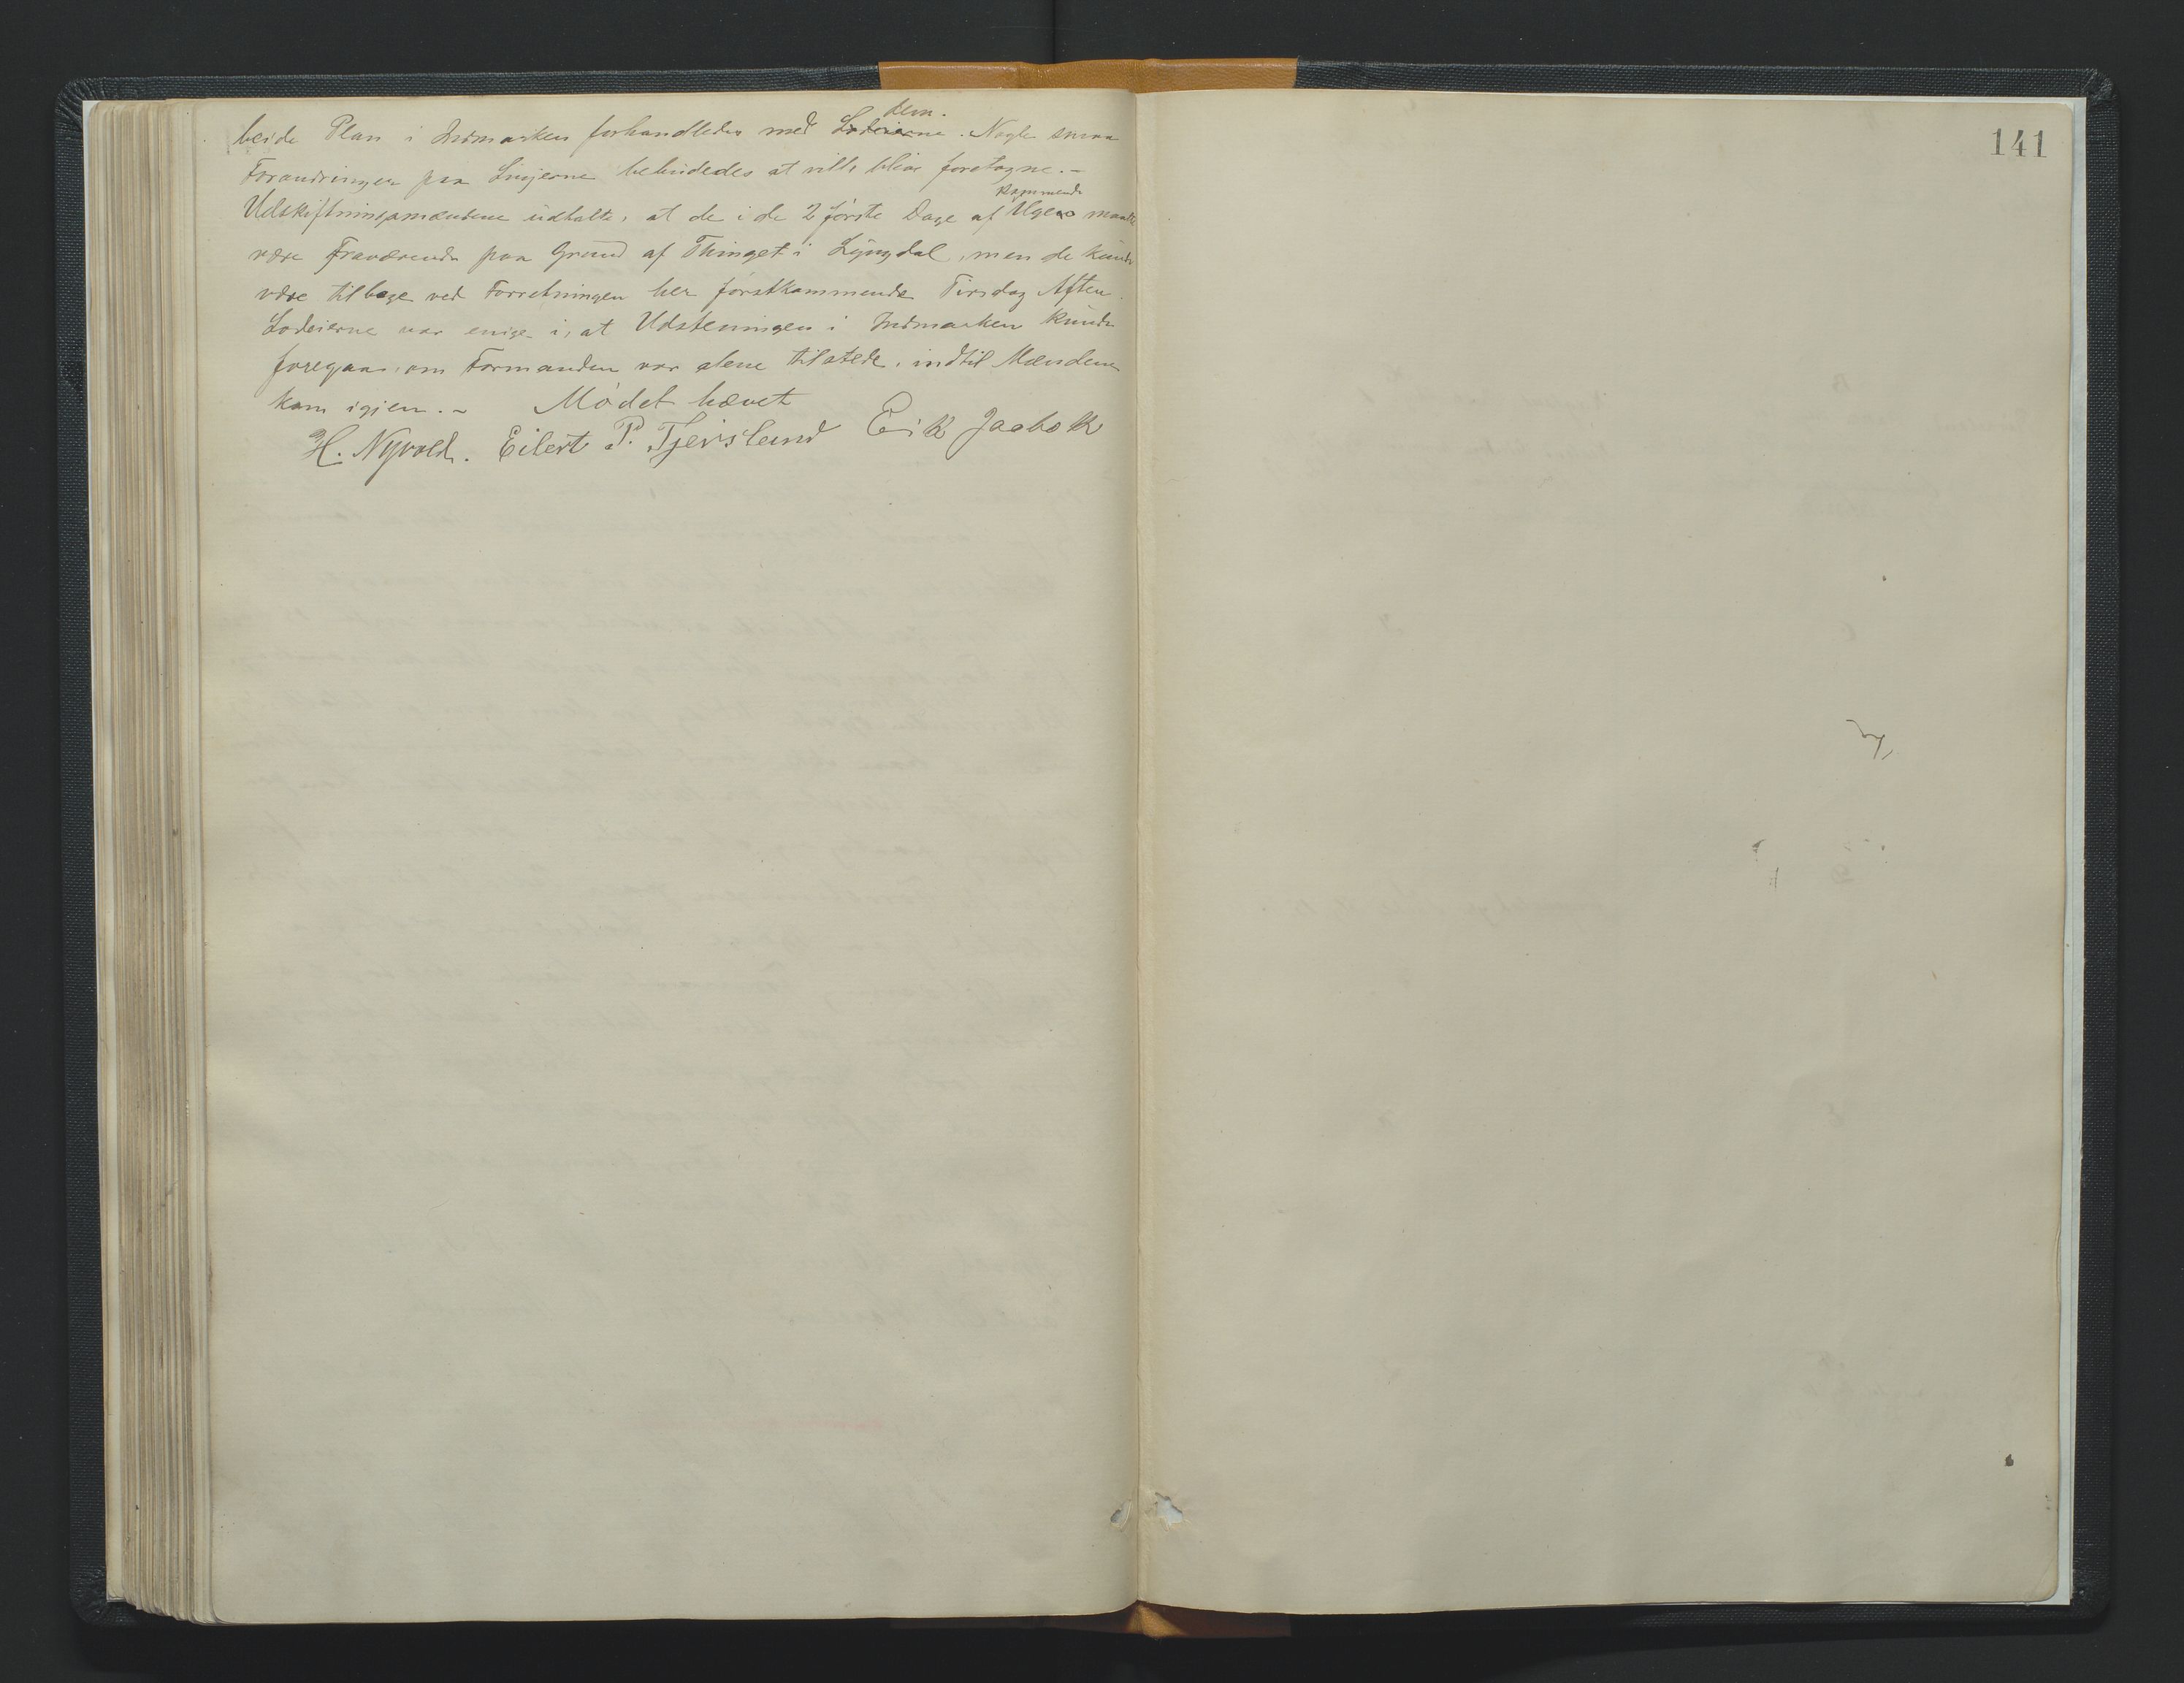 beide Plan i Indmarken forhandledes med Lodeierne dem. Nogle smaa
Forandringer paa Linjerne bebudedes at ville blive foretagne. –
Udskiftningsmændene udtalte, at de i de 2 første Dage af kommende Uge maatte
være fraværende paa Grund af Thinget i Lyngdal, men de kunde
være tilbage ved Forretningen her førstkommende Tirsdag Aften.
Lodeierne var enige i, at Udsteningen i Indmarken kunde
foregaa, om Formanden var alene tilstede, indtil Mændene
kom igjen. – Mødet hævet
H. Nyvold. Eilert P. Tjersland Eik Jaabæk
141